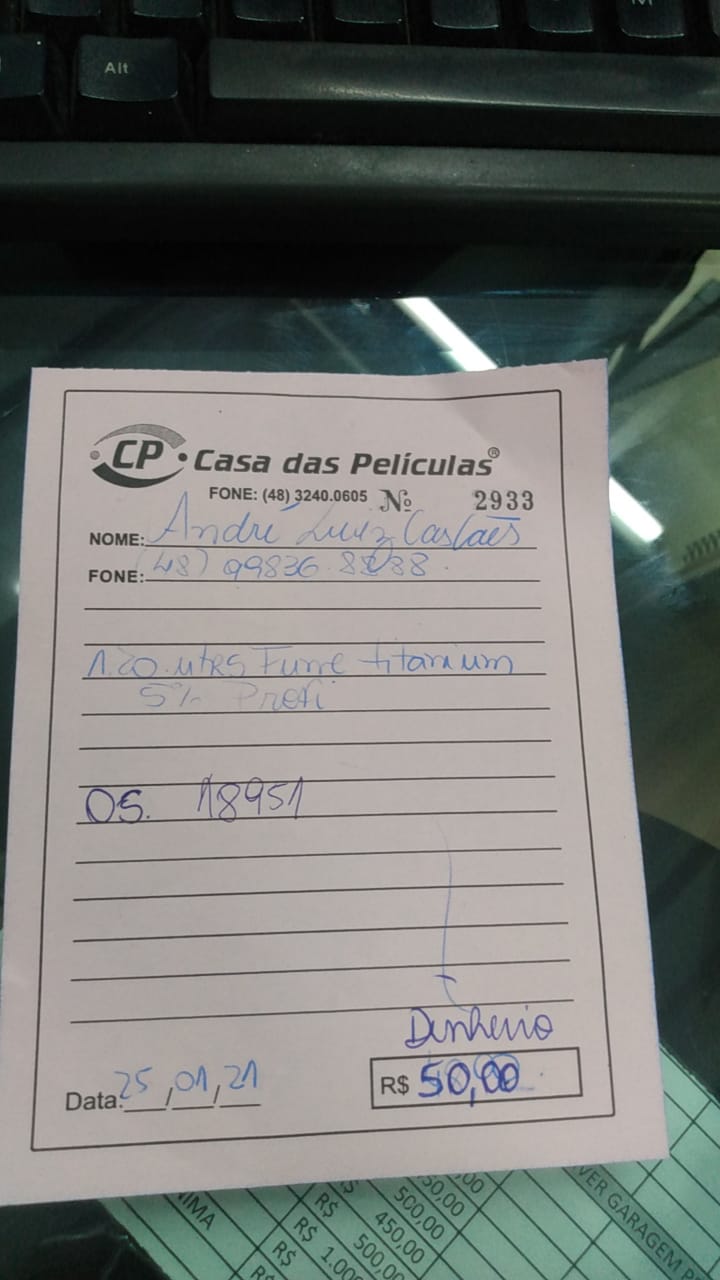 Alt
CP · Casa das Películas®
FONE: (48) 3240.0605 Nº 2933
NOME: André Luiz
FONE: (48) 99836
1.20 mtrs Fumê titanium
5% Profi
OS. 18951
Dinheiro
Data: 25/01/21 R$ 50,00
NIMA
R$ 500,00
R$ 450,00
R$ 500,00
R$ 1.000
R$
VER GARAGEM